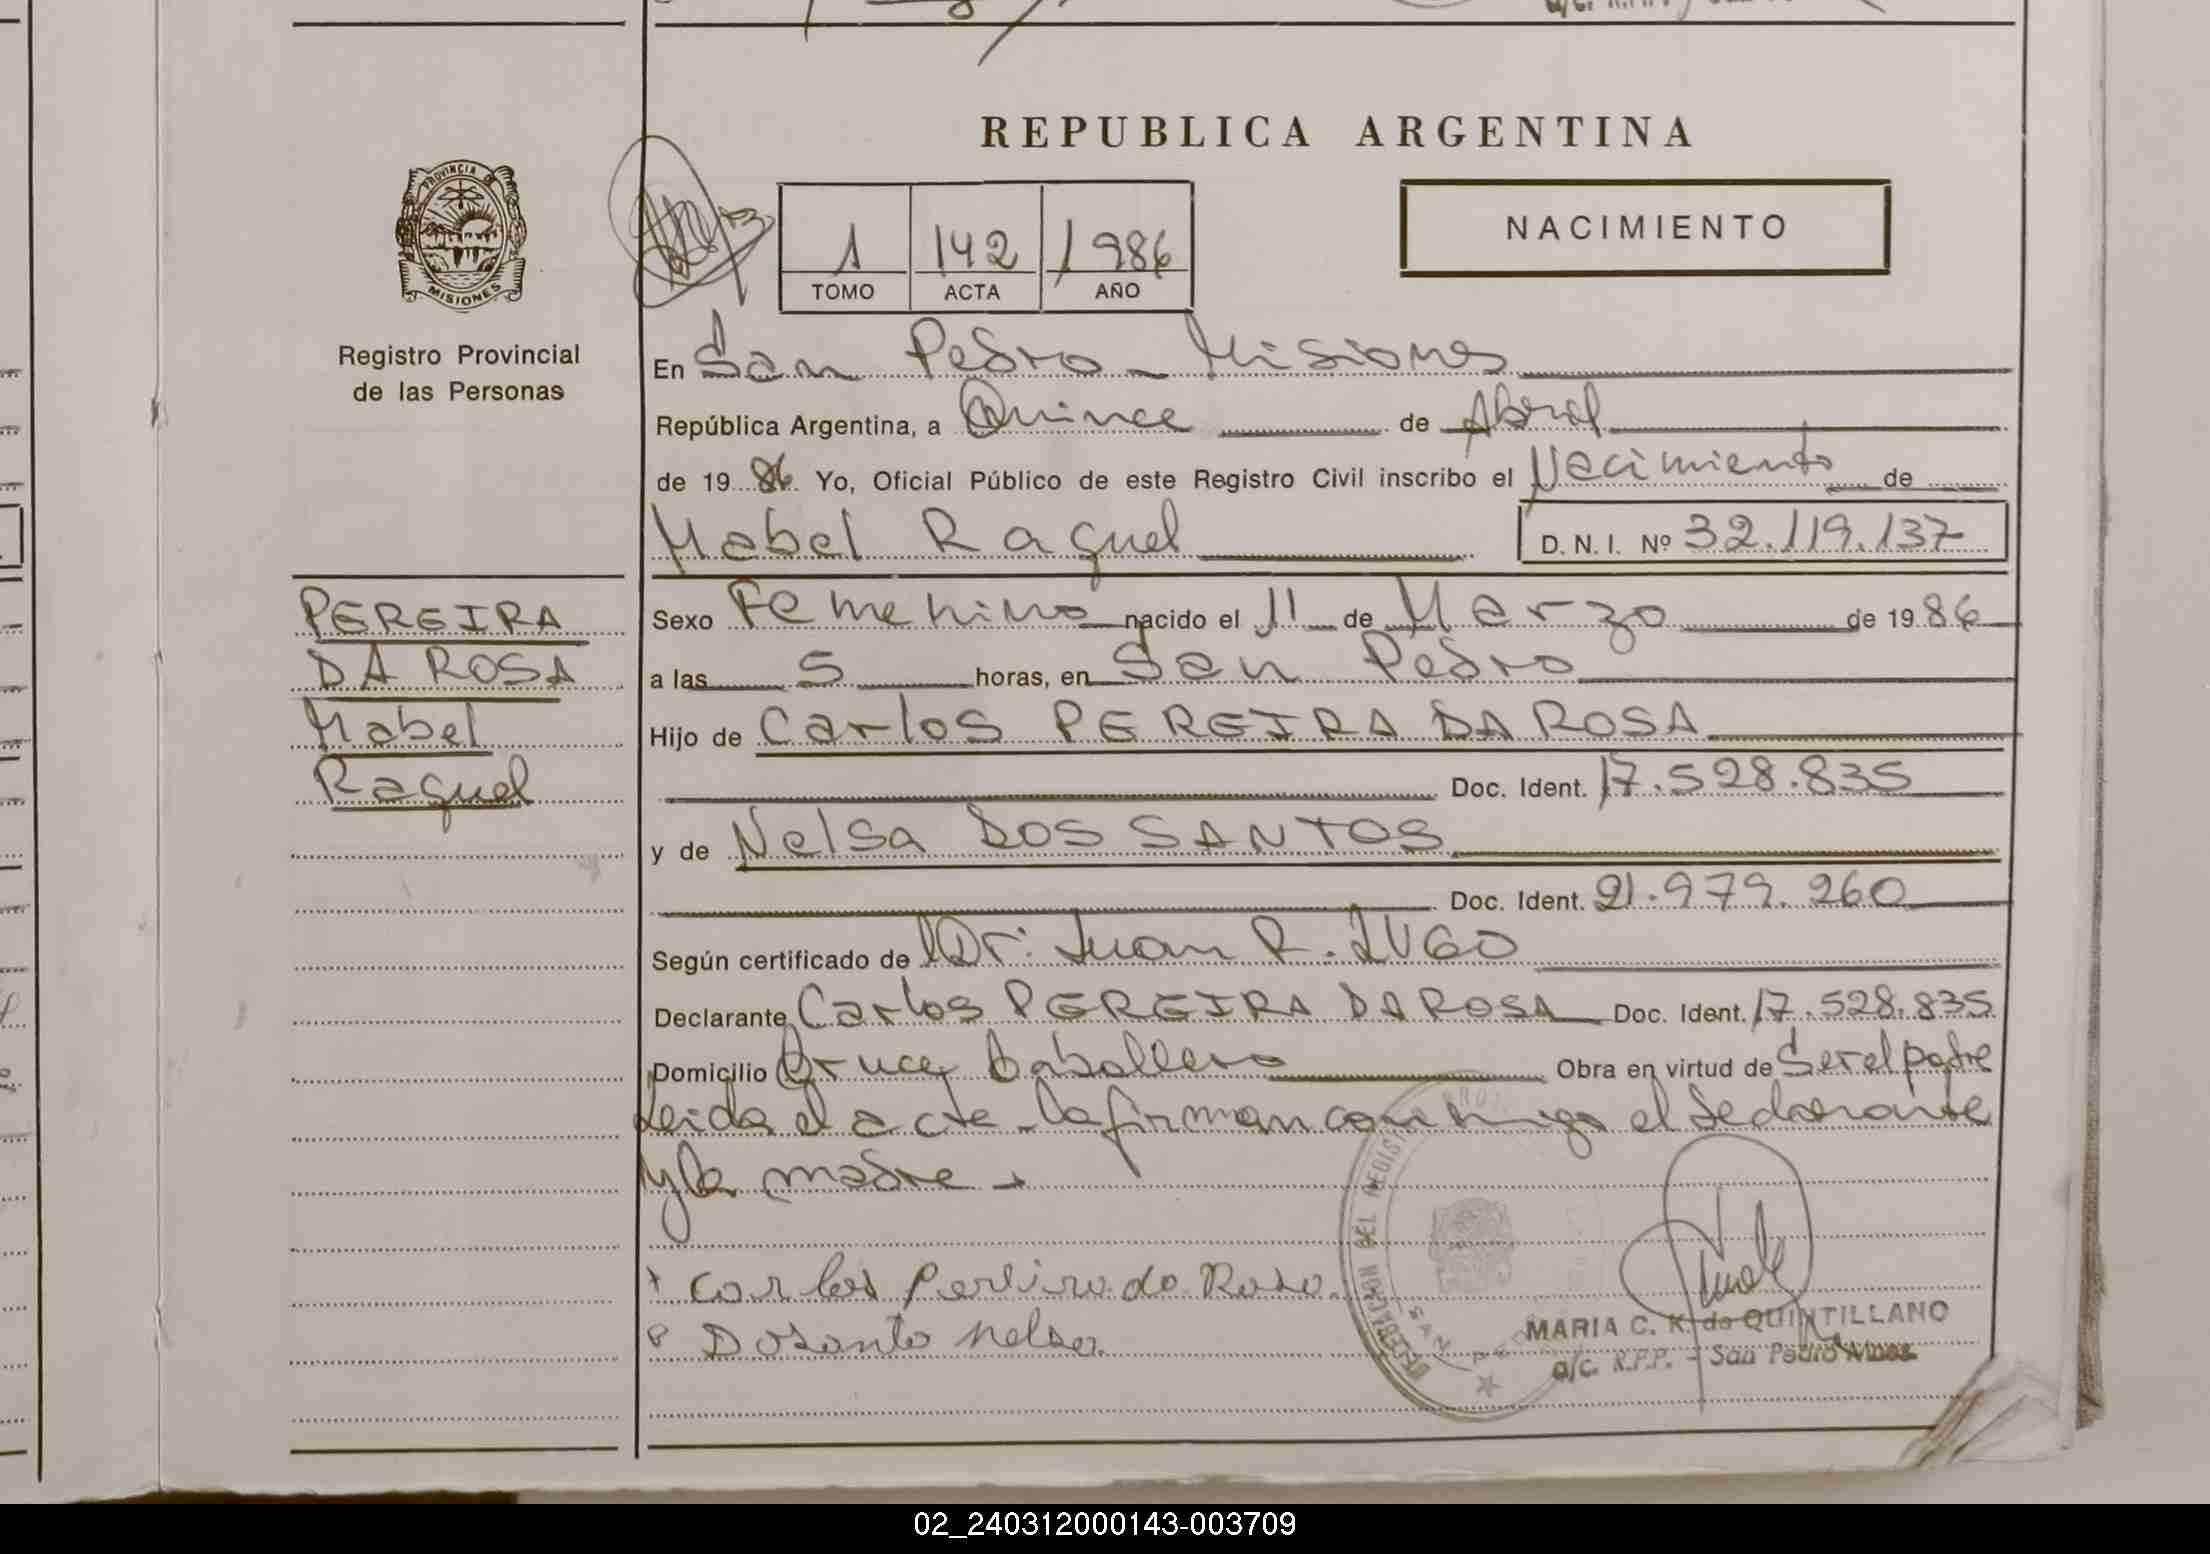 REPUBLICA ARGENTINA
PROVINCIA DE
MISIONES
Registro Provincial
de las Personas
NACIMIENTO
1 142 1986
TOMO ACTA AÑO
En San Pedro - Misiones
República Argentina, a Quince de Abril
de 1986 Yo, Oficial Público de este Registro Civil inscribo el Nacimiento de
Mabel Raquel D. N. I. Nº 32.119.137
PEREIRA
DA ROSA
Mabel
Raquel
Sexo Femenino nacido el 11 de Marzo de 1986
a las 5 horas, en San Pedro
Hijo de Carlos PEREIRA DA ROSA
Doc. Ident. 17.528.835
y de Nelsa DOS SANTOS
Doc. Ident. 21.979.260
Según certificado de Dr. Juan R. LUGO
Declarante Carlos PEREIRA DA ROSA Doc. Ident. 17.528.835
Domicilio Cruce Caballero Obra en virtud de Ser el padre
Leida el acta - la firman conmigo el declarante
y la madre -
Carlos Pereira da Rosa
Dosanto Nelsa
MARIA C. K. de QUINTILLANO
a/c. R.P.P. - San Pedro Mnes.
02_240312000143-003709